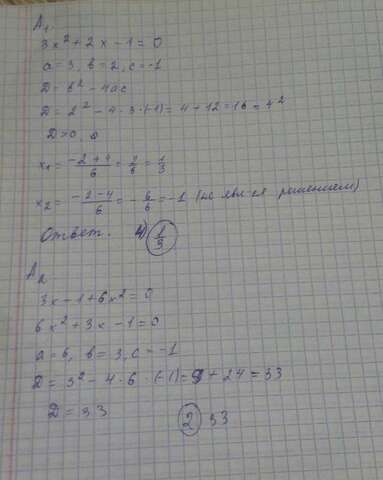 A₁
3x² + 2x - 1 = 0
a = 3, b = 2, c = -1
D = b² - 4ac
D = 2² - 4·3·(-1) = 4 + 12 = 16 = 4²
D > 0,
x₁ = (-2+4)/6 = 2/6 = 1/3
x₂ = (-2-4)/6 = -6/6 = -1 (не явл-ся решением)
Ответ. 4) 1/3
A₂
3x - 1 + 6x² = 0
6x² + 3x - 1 = 0
a = 6, b = 3, c = -1
D = 3² - 4·6·(-1) = 9 + 24 = 33
D = 33
2 33